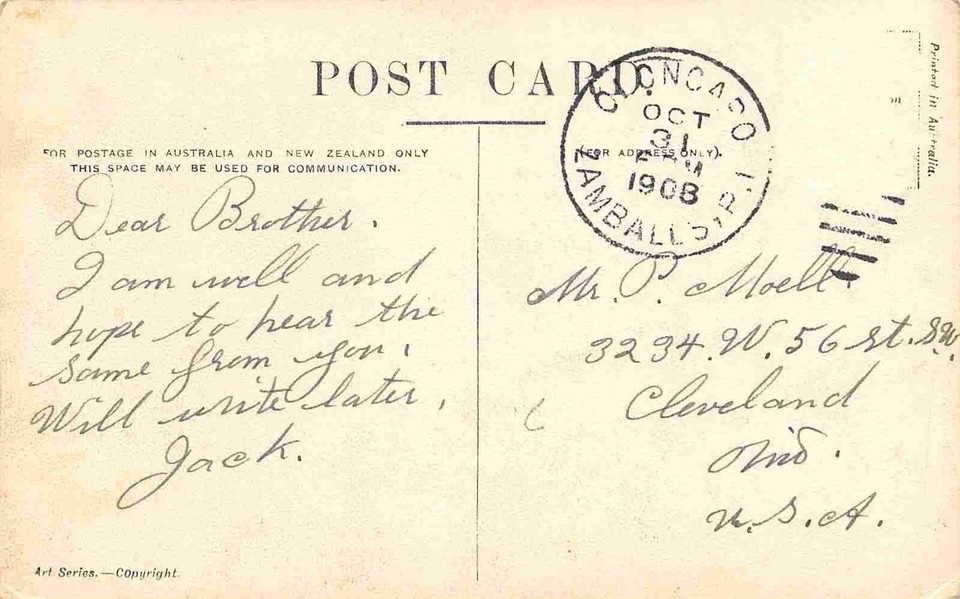 POST CARD.
FOR POSTAGE IN AUSTRALIA AND NEW ZEALAND ONLY
THIS SPACE MAY BE USED FOR COMMUNICATION.
(FOR ADDRESS ONLY).
OCT
31
1908
ZAMBALLS, P.I.
Printed in Australia.
Dear Brother.
I am well and
hope to hear the
same from you.
Will write later.
Jack.
Mr. P. Moell
3234. W. 56 st. SW.
Cleveland
Ohio.
U.S.A.
Art Series.—Copyright.